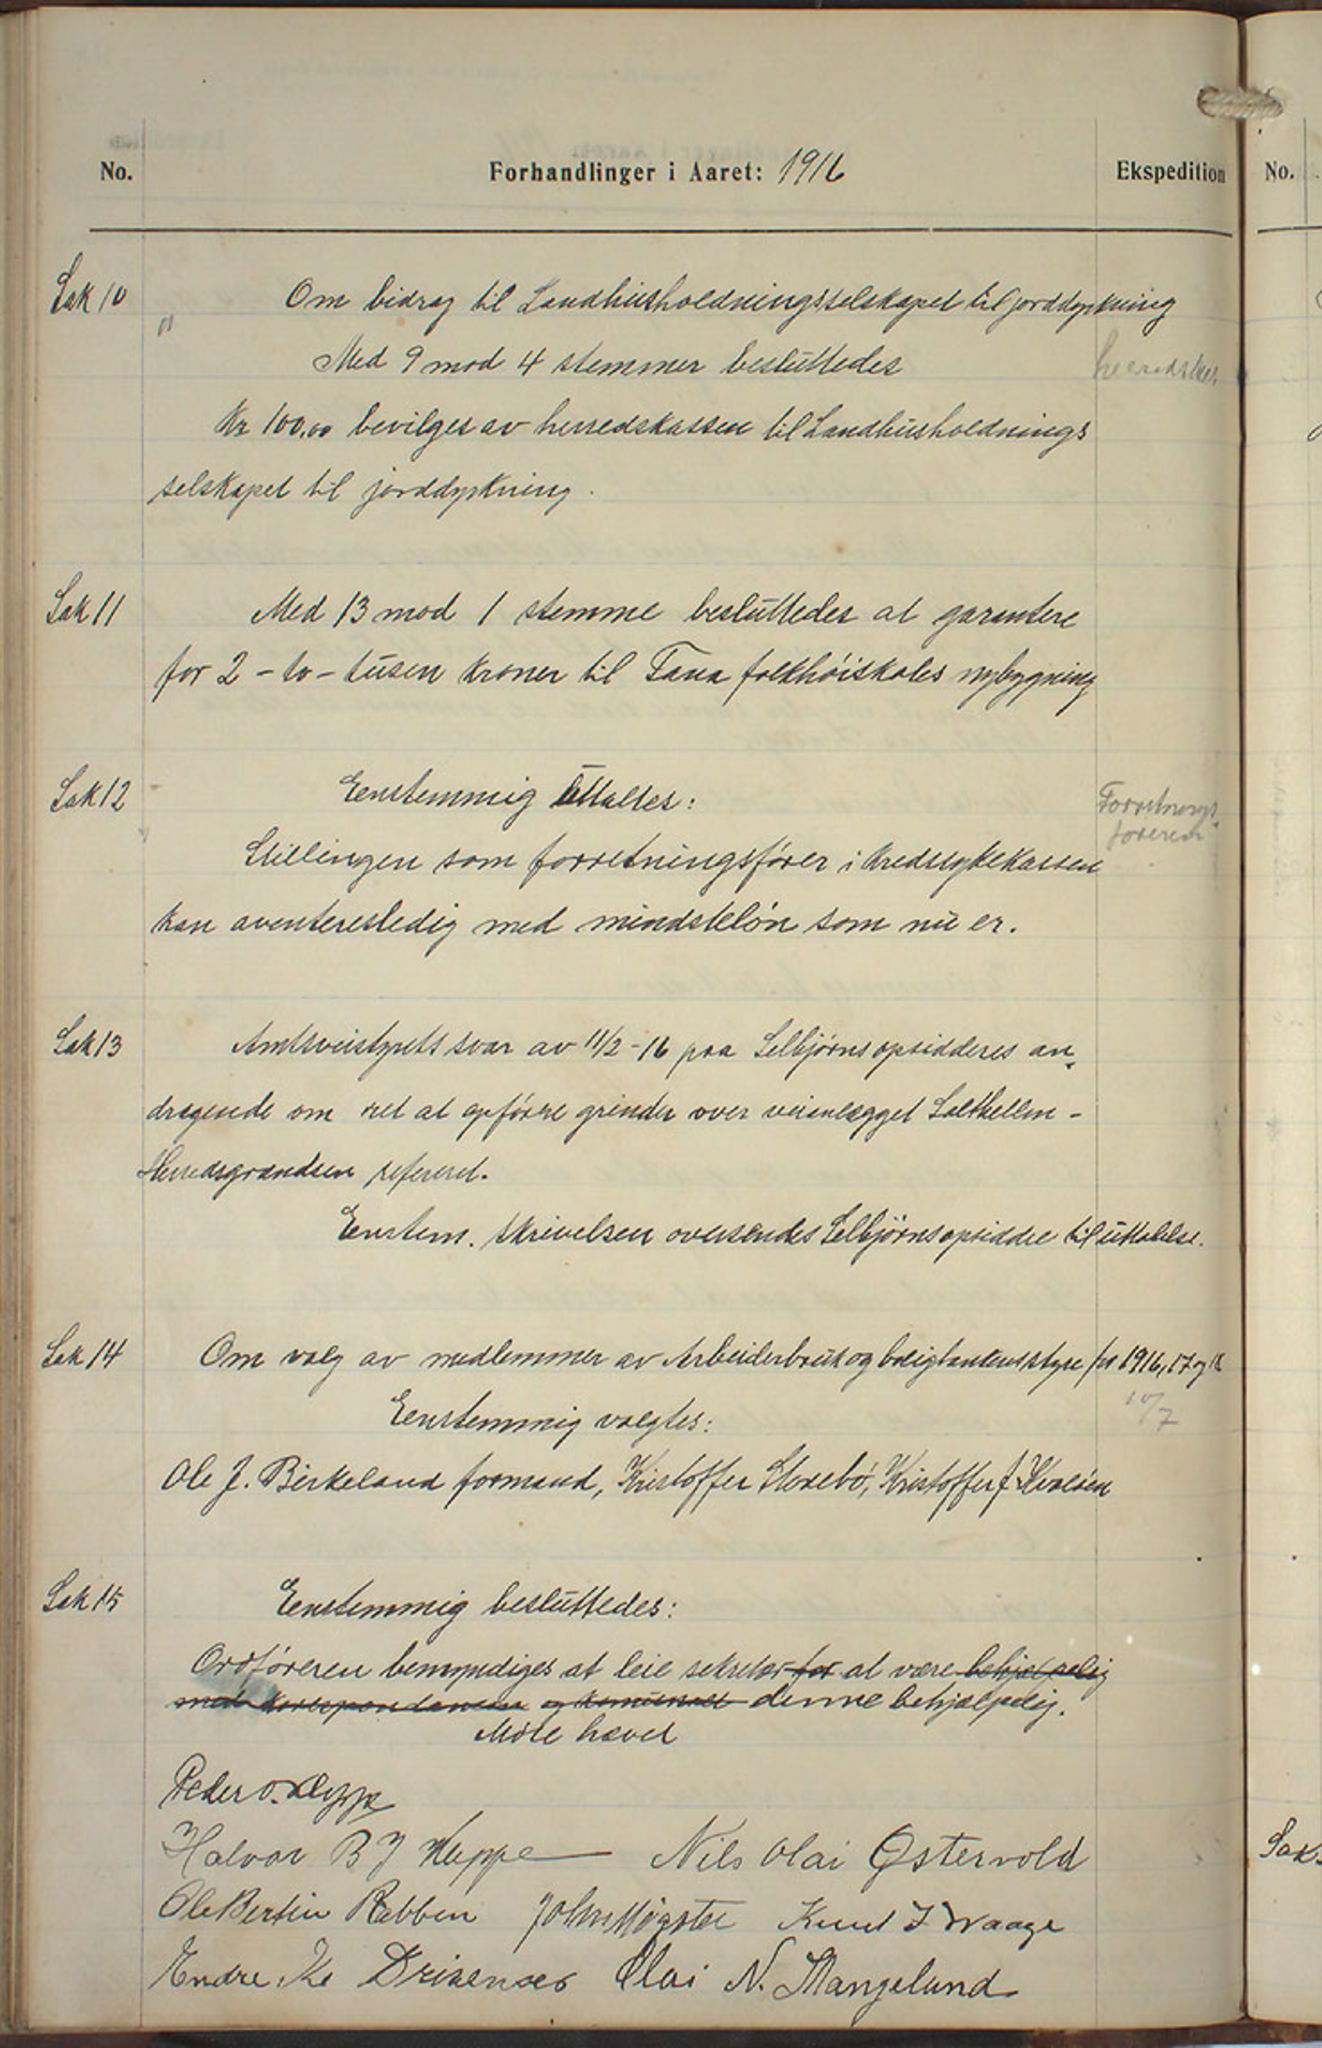 No.
Forhandlinger i Aaret: 1916
Ekspedition
No.
Sak 10
Om bidrag til Landhusholdningsselskapet til jorddyrkning
"
Med 9 mod 4 stemmer besluttedes
herredskas.
Kr 100,00 bevilges av herredskassen til Landhusholdnings
selskapet til jorddyrkning.
Sak 11
Med 13 mod 1 stemme besluttedes at garantere
for 2 - to - tusen kroner til Fana folkhöiskoles nybygning
Sak 12
Eenstemmig uttaltes:
Forretnings
föreren
Stillingen som forretningsförer i Kredssykekassen
kan averteresledig med mindstelön som nu er.
Sak 13
Amtsveistyrets svar av 11/2 - 16 paa Selbjörns opsidderes an-
dragende om ret at opförre grinder over veianlægget Salthellen -
Herredsgrændsen referert.
Enstem. Skrivelsen oversendes Selbjörns opsiddere til uttalelse.
Sak 14
Om valg av medlemmer av Arbeiderbruk og boligbankens styre for 1916, 17 og 18
10/7
Eenstemmig valgtes:
Ole J. Birkeland formand, Kristoffer Storebö, Kristoffer J
Sak 15
Eenstemmig besluttedes:
Ordföreren bemyndiges at leie sekretær for at være behjælpelig
med korrespondancen og komunal denne behjælpelig.
Möte hævet
Peder O.
Halvor B J Kleppe Nils Olai Østervold
Ole Bertin Rabben Johs Møgster Knut J Waage
Endre Olai N. Stangeland
Sak